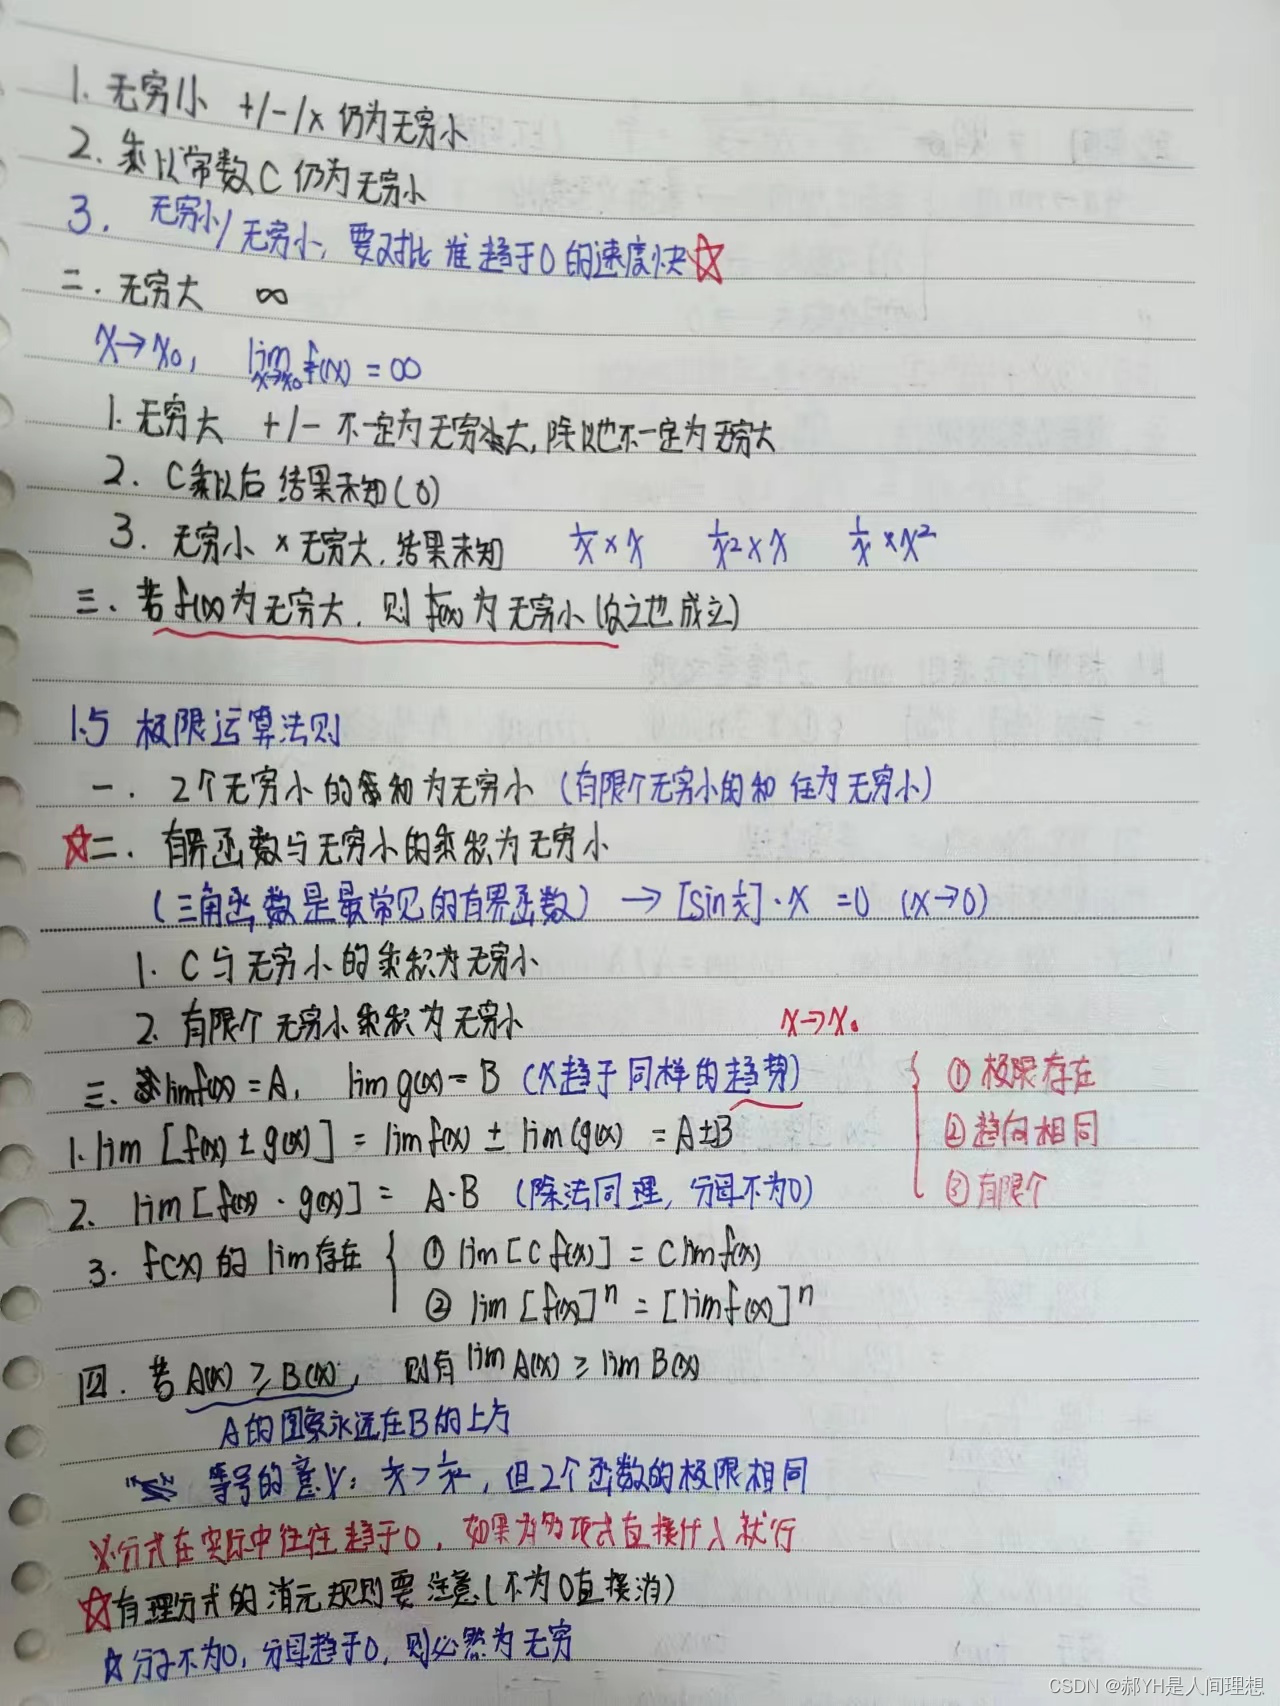 1. 无穷小 +/-/x 仍为无穷小
2. 乘以常数C 仍为无穷小
3. 无穷小/无穷小, 要对比谁趋于0的速度快☆
二. 无穷大 ∞
x→x₀, lim x→x₀ f(x) = ∞
1. 无穷大 +/- 不一定为无穷大, 除以也不一定为无穷大
2. C乘以后结果未知(0)
3. 无穷小 × 无穷大, 结果未知 1/x × x 1/x² × x 1/x × x²
三. 若f(x)为无穷大, 则 1/f(x) 为无穷小(反之也成立)
1.5 极限运算法则
一. 2个无穷小的和为无穷小 (有限个无穷小的和 任为无穷小)
☆二. 有界函数与无穷小的乘积为无穷小
(三角函数是最常见的有界函数) → [sin 1/x]·x =0 (x→0)
1. C与无穷小的乘积为无穷小
2. 有限个无穷小乘积为无穷小
x→x₀
三. limf(x)=A, lim g(x)=B (x趋于同样的趋势) ① 极限存在
1. lim [f(x) ± g(x)] = lim f(x) ± lim(g(x) = A±B ② 趋向相同
2. lim [f(x) · g(x)] = A·B (除法同理, 分母不为0) ③ 有限个
3. f(x) 的 lim存在 { ① lim [C f(x)] = C lim f(x)
② lim [f(x)]ⁿ = [lim f(x)]ⁿ
四. 若 A(x) ≥ B(x), 则有 lim A(x) ≥ lim B(x)
A的图象永远在B的上方
等号的意义: 1/x > 1/x², 但2个函数的极限相同
※分式在实际中往往趋于0, 如果为多项式直接代入就行
☆有理分式的消元规则要注意(不为0直接消)
☆分子不为0, 分母趋于0, 则必然为无穷
CSDN @郝YH是人间理想